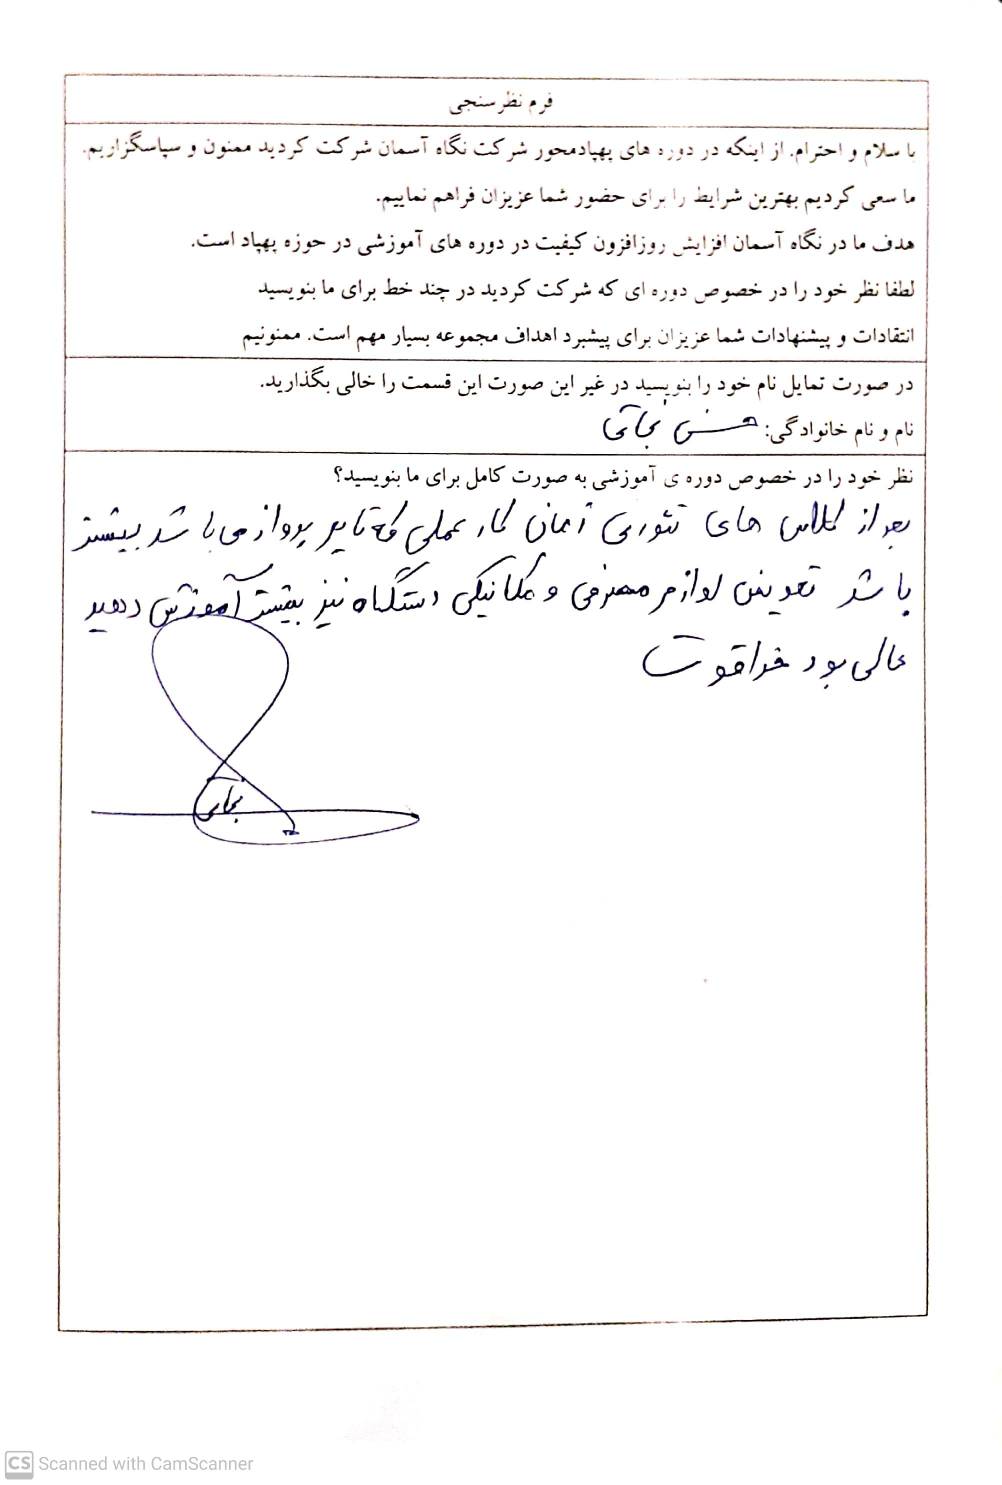 فرم نظرسنجی
با سلام و احترام. از اینکه در دوره های پهپادمحور شرکت نگاه آسمان شرکت کردید ممنون و سپاسگزاریم.
ما سعی کردیم بهترین شرایط را برای حضور شما عزیزان فراهم نماییم.
هدف ما در نگاه آسمان افزایش روزافزون کیفیت در دوره های آموزشی در حوزه پهپاد است.
لطفا نظر خود را در خصوص دوره ای که شرکت کردید در چند خط برای ما بنویسید
انتقادات و پیشنهادات شما عزیزان برای پیشبرد اهداف مجموعه بسیار مهم است. ممنونیم
در صورت تمایل نام خود را بنویسید در غیر این صورت این قسمت را خالی بگذارید.
نام و نام خانوادگی: حسن نجاتی
نظر خود را در خصوص دوره ی آموزشی به صورت کامل برای ما بنویسید؟
بعد از کلاس های تئوری زمان کار عملی که تایم پرواز می باشد بیشتر
باشد تعویض لوازم مصرفی و مکانیکی دستگاه نیز بیشتر آموزش دهید
عالی بود خداقوت
نجاتی
CS Scanned with CamScanner